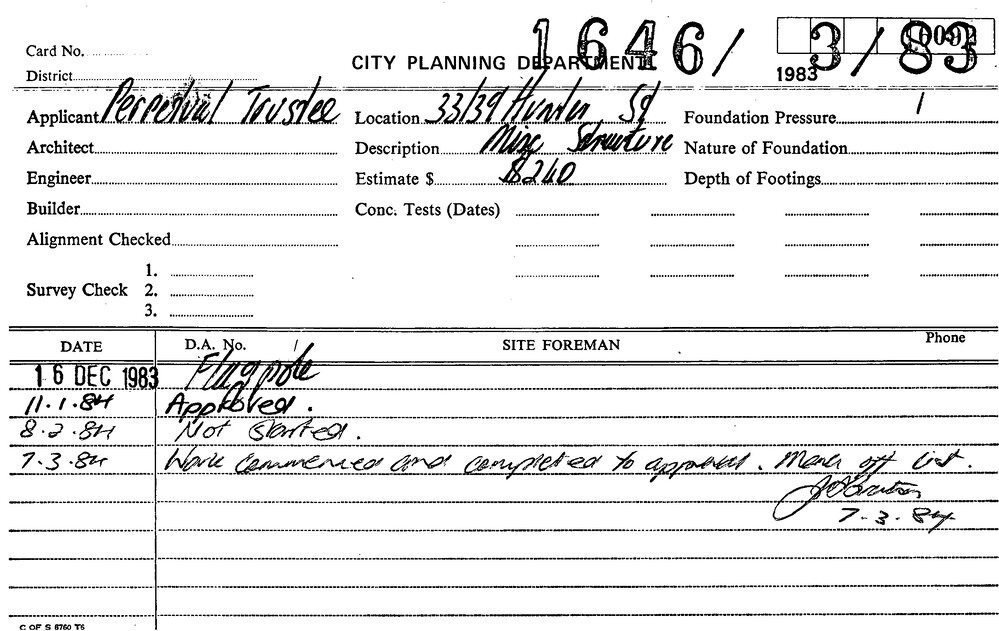 1646/ 3/83
Card No.
CITY PLANNING DEPARTMENT
District
1983
Applicant Perpetual Trustee Location 33/39 Hunter St Foundation Pressure
Architect Description Misc Structure Nature of Foundation
Engineer Estimate $ $240 Depth of Footings
Builder Conc. Tests (Dates)
Alignment Checked
1.
Survey Check 2.
3.
DATE D.A. No. / SITE FOREMAN Phone
16 DEC 1983 Flagpole
11.1.84 Approved.
8.2.84 Not Started.
7.3.84 Work commenced and completed to approval. Mark off list.
7.3.84
C OF S 6760 T6